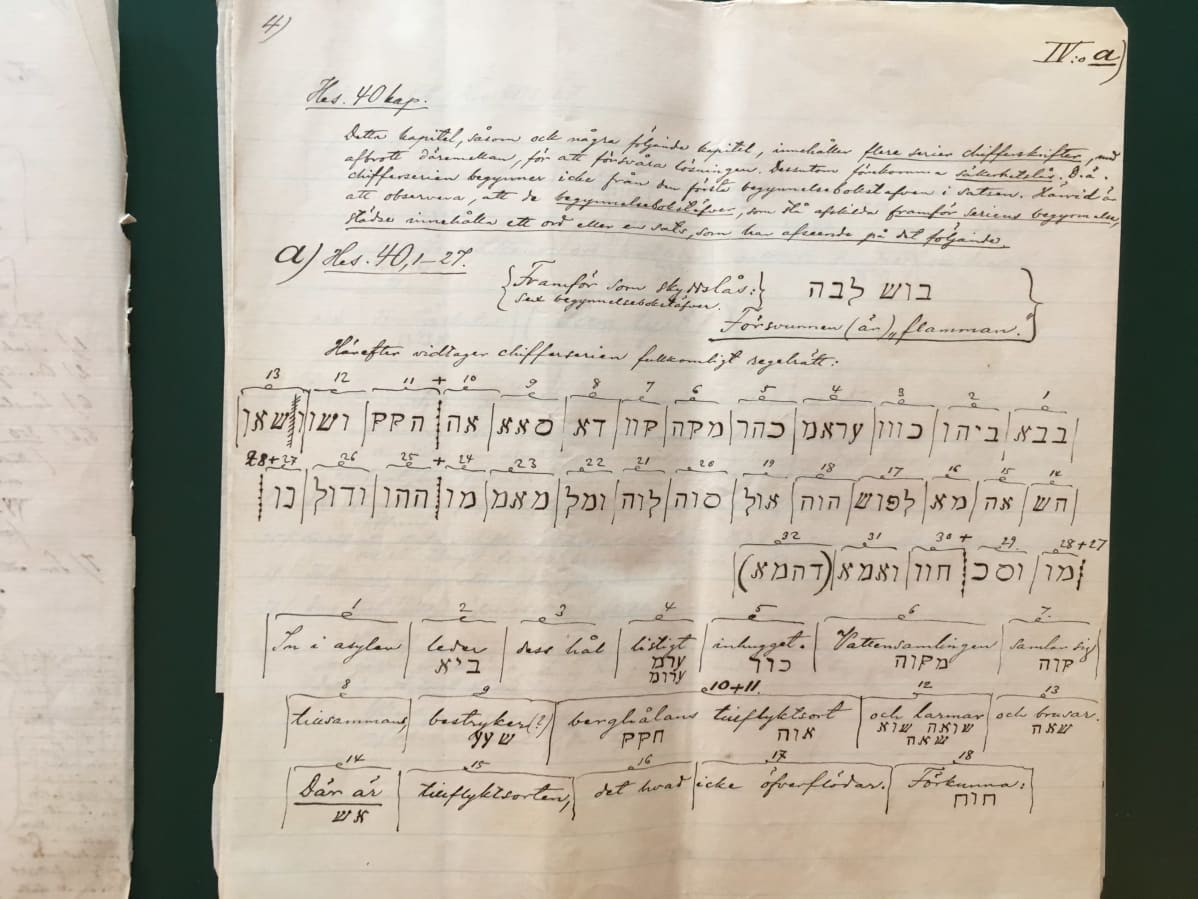 4)
IV:o a)
Hes. 40 kap.
Detta kapitel, såsom och några följande kapitel, innehåller flere serier chifferskrifter, med
afbrott däremellan, för att försvåra lösningen. Dessutom förekomma säkerhetslås. D.ä.
chifferserien begynner icke från den första begynnelsebokstafven i satsen. Härvid är
att observera, att de begynnelsebokstäfver, som stå afskilda framför seriens begynnelse,
städse innehålla ett ord eller en sats, som har afseende på det följande.
a) Hes. 40, 1–27.
Framför som skyddslås: בוש לבה
sex begynnelsebokstäfver.
Försvunnen (är) „flamman."
Härefter vidtager chifferserien fullkomligt regelrätt:
1 2 3 4 5 6 7 8 9 10 + 11 12 13
בבא ביהו כווו עראמ כהר מקה קוו דא סאא אה הקק ושו ושאו
14 15 16 17 18 19 20 21 22 23 24 + 25 26 27 + 28
חש אה מא לפוש הוה אול סוה לוה ומל מאמ מו ההו ודול נו
27 + 28 29. + 30 31 32
מו וסכ חוו ואמא (דהמא)
1 2 3 4 5 6 7.
In i asylen leder dess hål listigt inhugget. Vattensamlingen samlar sig
ביא ערמ כור מקוה קוה
ערומ
8 9 10+11. 12 13
tillsammans, bestryker (?) berghålans tillflyktsort och larmar och brusar.
שעץ חקק אוה שואה שוא שאה
שאה
14 15 16 17 18
Där är tillflyktsorten, det hvad icke öfverflödar. Förkunna:
אש חוח